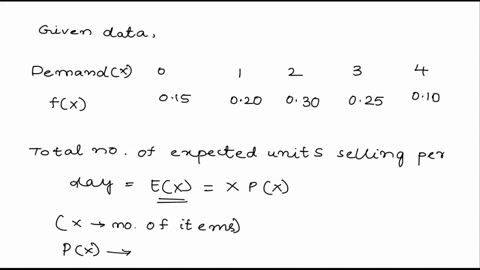 Given data,
Demand(x) 0 1 2 3 4
f(x) 0.15 0.20 0.30 0.25 0.10
Total no. of expected units selling per
day = E(x) = x P(x)
(x → no. of items)
P(x) →